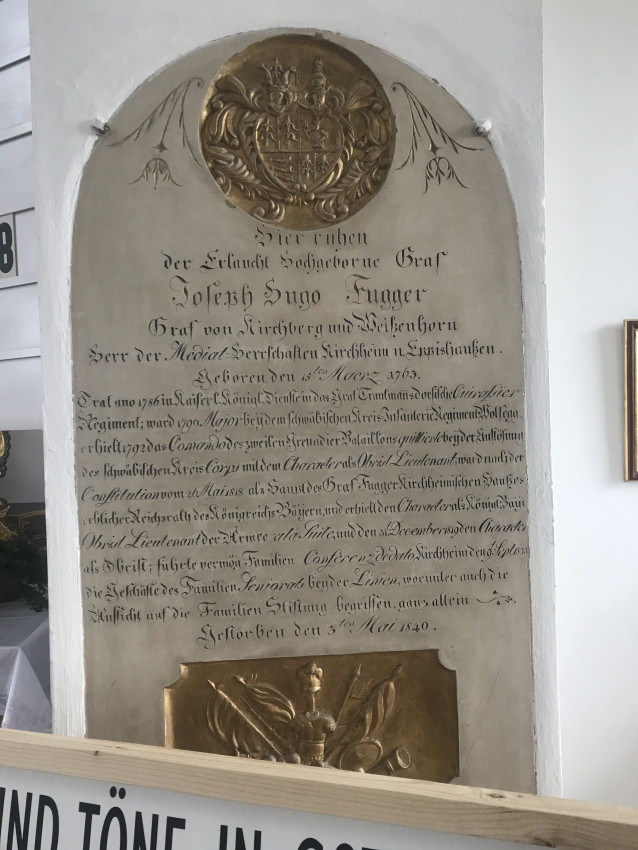 Hier ruhen
der Erlaucht Hochgeborne Graf
Joseph Hugo Fugger
Graf von Kirchberg und Weißenhorn
Herr der Mediat-Herrschaften Kirchheim u. Eppishaußen.
Geboren den 15ten Maerz 1763.
Trat ano 1786 in Kaiserl. Königl. Dienste in das Graf Trautmansdorfische Cuirassier
Regiment; ward 1790 Major bey dem schwäbischen Kreis Infanterie Regiment Wolfega
erhielt 1792 das Comando des zweiten Grenadier Bataillons quittert bey der Auflösung
des schwäbischen Kreis Corps mit dem Character als Obrist Lieutenant; ward nach der
Constitution vom 26 Mai 1818 als Haupt des Graf Fugger Kirchheimischen Haußes
erblicher Reichsrath des Königreichs Bayern, und erhielt den Character als Königl. Bayr
Obrist Lieutenant der Armee a la Suite, und den Decembers den Character
als Obrist; führte vermög Familien Conferenz de dato Kirchheim den
die Geschäfte des Familien Seniorats beyder Linien, worunter auch die
Aufsicht auf die Familien Stiftung begriffen, ganz allein
Gestorben den 3ten Mai 1840.
8
UND TÖNE IN